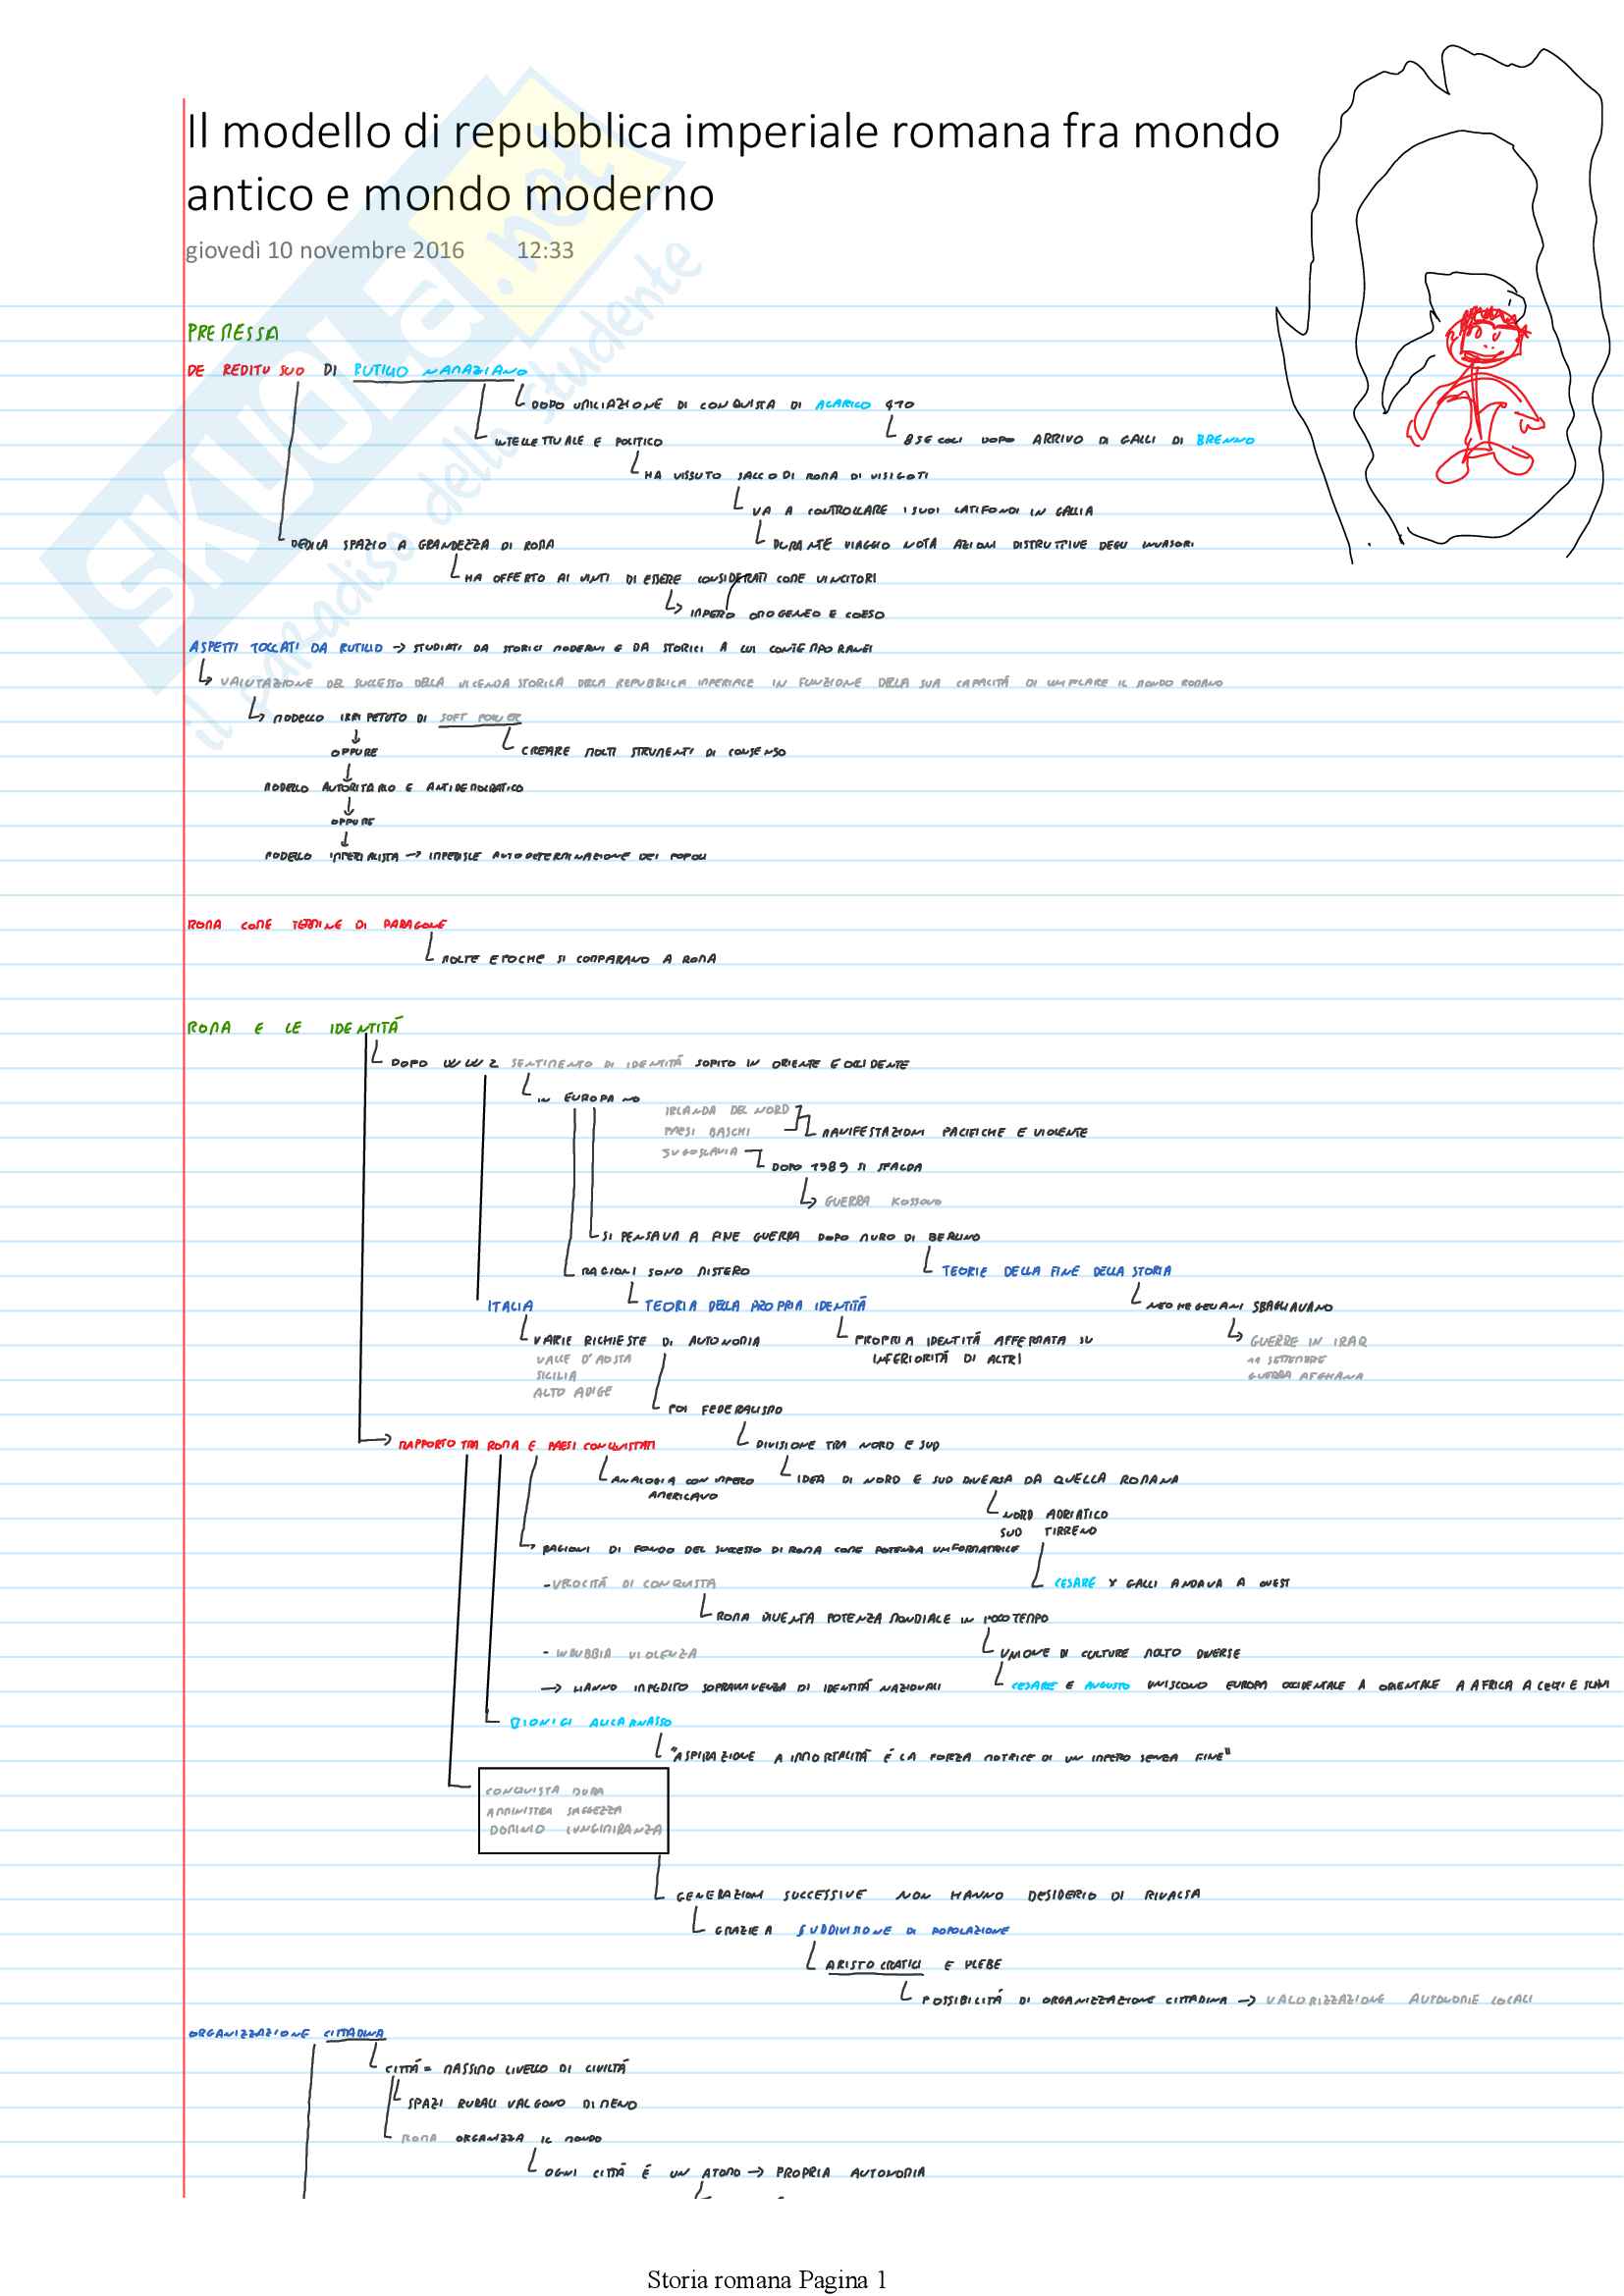 Il modello di repubblica imperiale romana fra mondo
antico e mondo moderno
giovedì 10 novembre 2016 12:33
SKUOLA.net
il paradiso dello studente
PREMESSA
DE REDITU SUO DI RUTILIO NAMAZIANO
DOPO UMILIAZIONE DI CONQUISTA DI ALARICO 410
INTELLETTUALE E POLITICO
8 SECOLI DOPO ARRIVO DI GALLI DI BRENNO
HA VISSUTO SACCO DI ROMA DI VISIGOTI
VA A CONTROLLARE I SUOI LATIFONDI IN GALLIA
DEDICA SPAZIO A GRANDEZZA DI ROMA
DURANTE VIAGGIO NOTA AZIONI DISTRUTTIVE DEGLI INVASORI
HA OFFERTO AI VINTI DI ESSERE CONSIDERATI COME VINCITORI
IMPERO OMOGENEO E COESO
ASPETTI TOCCATI DA RUTILIO → STUDIATI DA STORICI MODERNI E DA STORICI A LUI CONTEMPORANEI
VALUTAZIONE DEL SUCCESSO DELLA VICENDA STORICA DELLA REPUBBLICA IMPERIALE IN FUNZIONE DELLA SUA CAPACITÁ DI UNIFICARE IL MONDO ROMANO
MODELLO IRRIPETUTO DI SOFT POWER
OPPURE
CREARE MOLTI STRUMENTI DI CONSENSO
MODELLO AUTORITARIO E ANTIDEMOCRATICO
OPPURE
MODELLO IMPERIALISTA → IMPEDISCE AUTODETERMINAZIONE DEI POPOLI
ROMA COME TERMINE DI PARAGONE
MOLTE EPOCHE SI COMPARANO A ROMA
ROMA E LE IDENTITÁ
DOPO WW2 SENTIMENTO DI IDENTITÁ SOPITO IN ORIENTE E OCCIDENTE
IN EUROPA NO
IRLANDA DEL NORD
PAESI BASCHI
MANIFESTAZIONI PACIFICHE E VIOLENTE
JUGOSLAVIA
DOPO 1989 SI SFALDA
GUERRA KOSSOVO
SI PENSAVA A FINE GUERRA DOPO MURO DI BERLINO
RAGIONI SONO MISTERO
TEORIE DELLA FINE DELLA STORIA
ITALIA
TEORIA DELLA PROPRIA IDENTITÁ
NEOHEGELIANI SBAGLIAVANO
VARIE RICHIESTE DI AUTONOMIA
PROPRIA IDENTITÁ AFFERMATA SU
INFERIORITÁ DI ALTRI
GUERRE IN IRAQ
VALLE D'AOSTA
11 SETTEMBRE
SICILIA
GUERRA AFGHANA
ALTO ADIGE
POI FEDERALISMO
RAPPORTO TRA ROMA E PAESI CONQUISTATI
DIVISIONE TRA NORD E SUD
ANALOGIA CON IMPERO
AMERICANO
IDEA DI NORD E SUD DIVERSA DA QUELLA ROMANA
NORD ADRIATICO
SUD TIRRENO
RAGIONI DI FONDO DEL SUCCESSO DI ROMA COME POTENZA UNIFORMATRICE
-VELOCITÁ DI CONQUISTA
CESARE X GALLI ANDAVA A OVEST
ROMA DIVENTA POTENZA MONDIALE IN POCO TEMPO
- INDUBBIA VIOLENZA
UNIONE DI CULTURE MOLTO DIVERSE
→ HANNO IMPEDITO SOPRAVVIVENZA DI IDENTITÁ NAZIONALI
CESARE E AUGUSTO UNISCONO EUROPA OCCIDENTALE A ORIENTALE A AFRICA A CELTI E SLAVI
DIONIGI ALICARNASSO
"ASPIRAZIONE A IMMORTALITÁ É LA FORZA MOTRICE DI UN IMPERO SENZA FINE"
CONQUISTA DURA
AMMINISTRA SAGGEZZA
DOMINIO LUNGIMIRANZA
GENERAZIONI SUCCESSIVE NON HANNO DESIDERIO DI RIVALSA
GRAZIE A SUDDIVISIONE DI POPOLAZIONE
ARISTOCRATICI E PLEBE
POSSIBILITÁ DI ORGANIZZAZIONE CITTADINA → VALORIZZAZIONE AUTONOMIE LOCALI
ORGANIZZAZIONE CITTADINA
CITTÁ = MASSIMO LIVELLO DI CIVILTÁ
SPAZI RURALI VALGONO DI MENO
ROMA ORGANIZZA IL MONDO
OGNI CITTÁ É UN ATOMO → PROPRIA AUTONOMIA
Storia romana Pagina 1